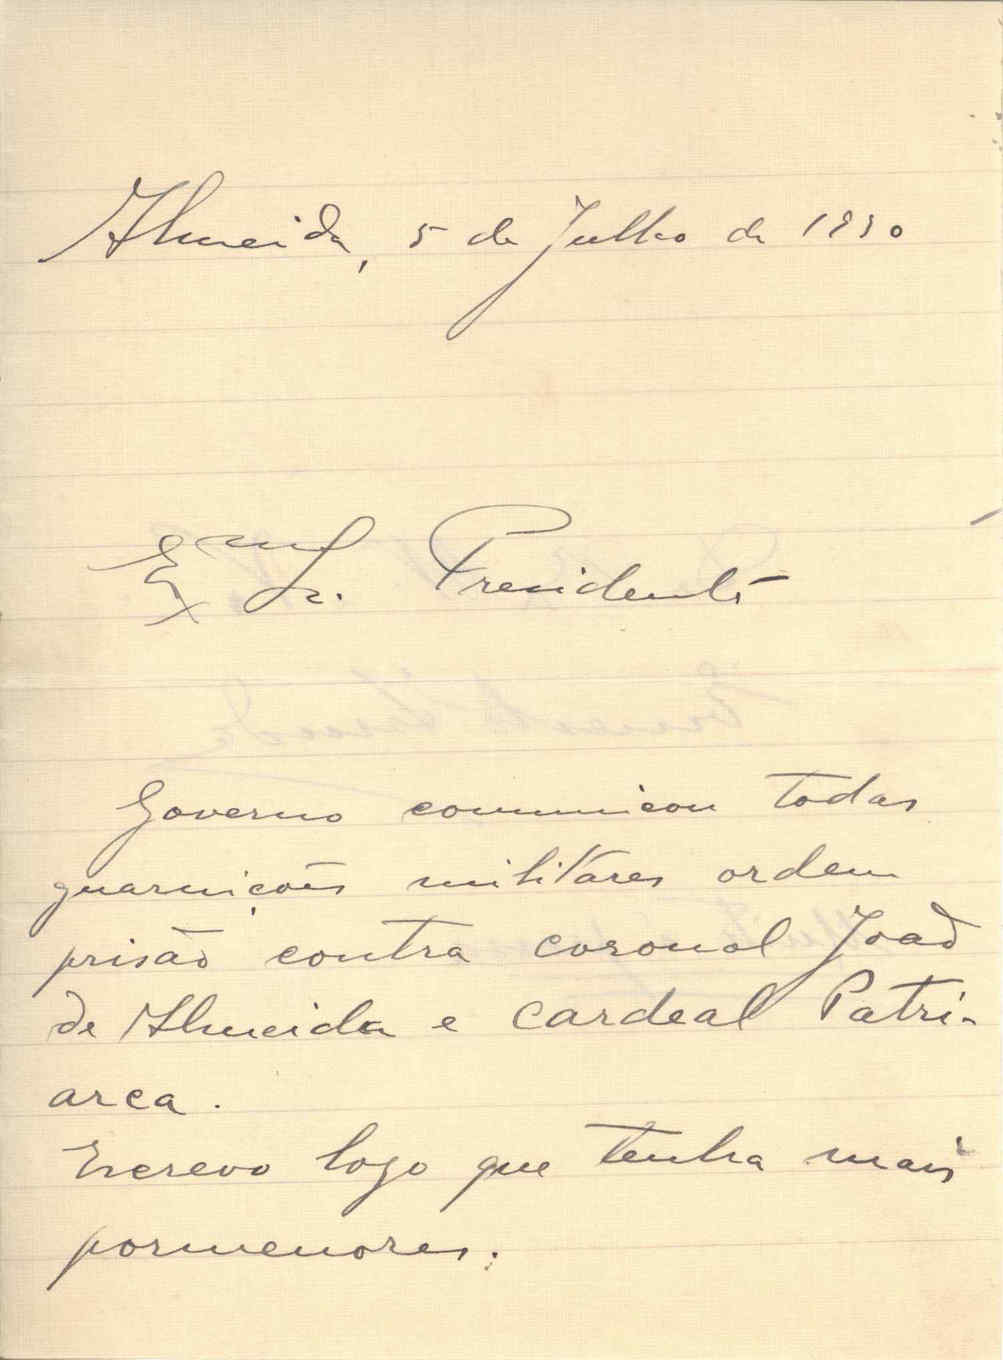 Almeida, 5 de Julho de 1930
Exmo Sr. Presidente
Governo comunicou todas
guarnições militares ordem
prisão contra coronel João
de Almeida e cardeal Patri-
arca.
Escrevo logo que tenha mais
pormenores.